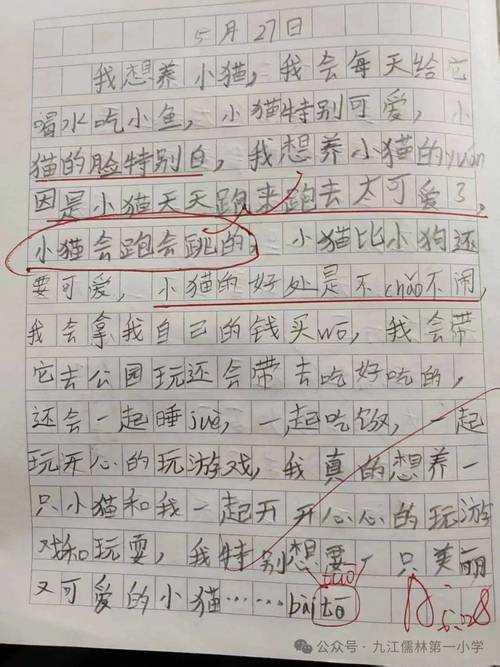 5月27日
我想养小猫，我会每天给它
喝水吃小鱼，小猫特别可爱，小
猫的脸特别白，我想养小猫的yuán
因是小猫天天跑来跑去太可爱了，
小猫会跑会跳的，小猫比小狗还
要可爱，小猫的好处是不chǎo不闹，
我会拿我自己的钱买wō，我会带
它去公园玩还会带去吃好吃的，
还会一起睡jué，一起吃饭，一起
玩开心的玩游戏，我真的想养一
只小猫和我一起开开心心的玩游
戏和玩耍，我特别想要，只美丽
又可爱的小猫……bàitō
tuō
5.28
公众号·九江儒林第一小学